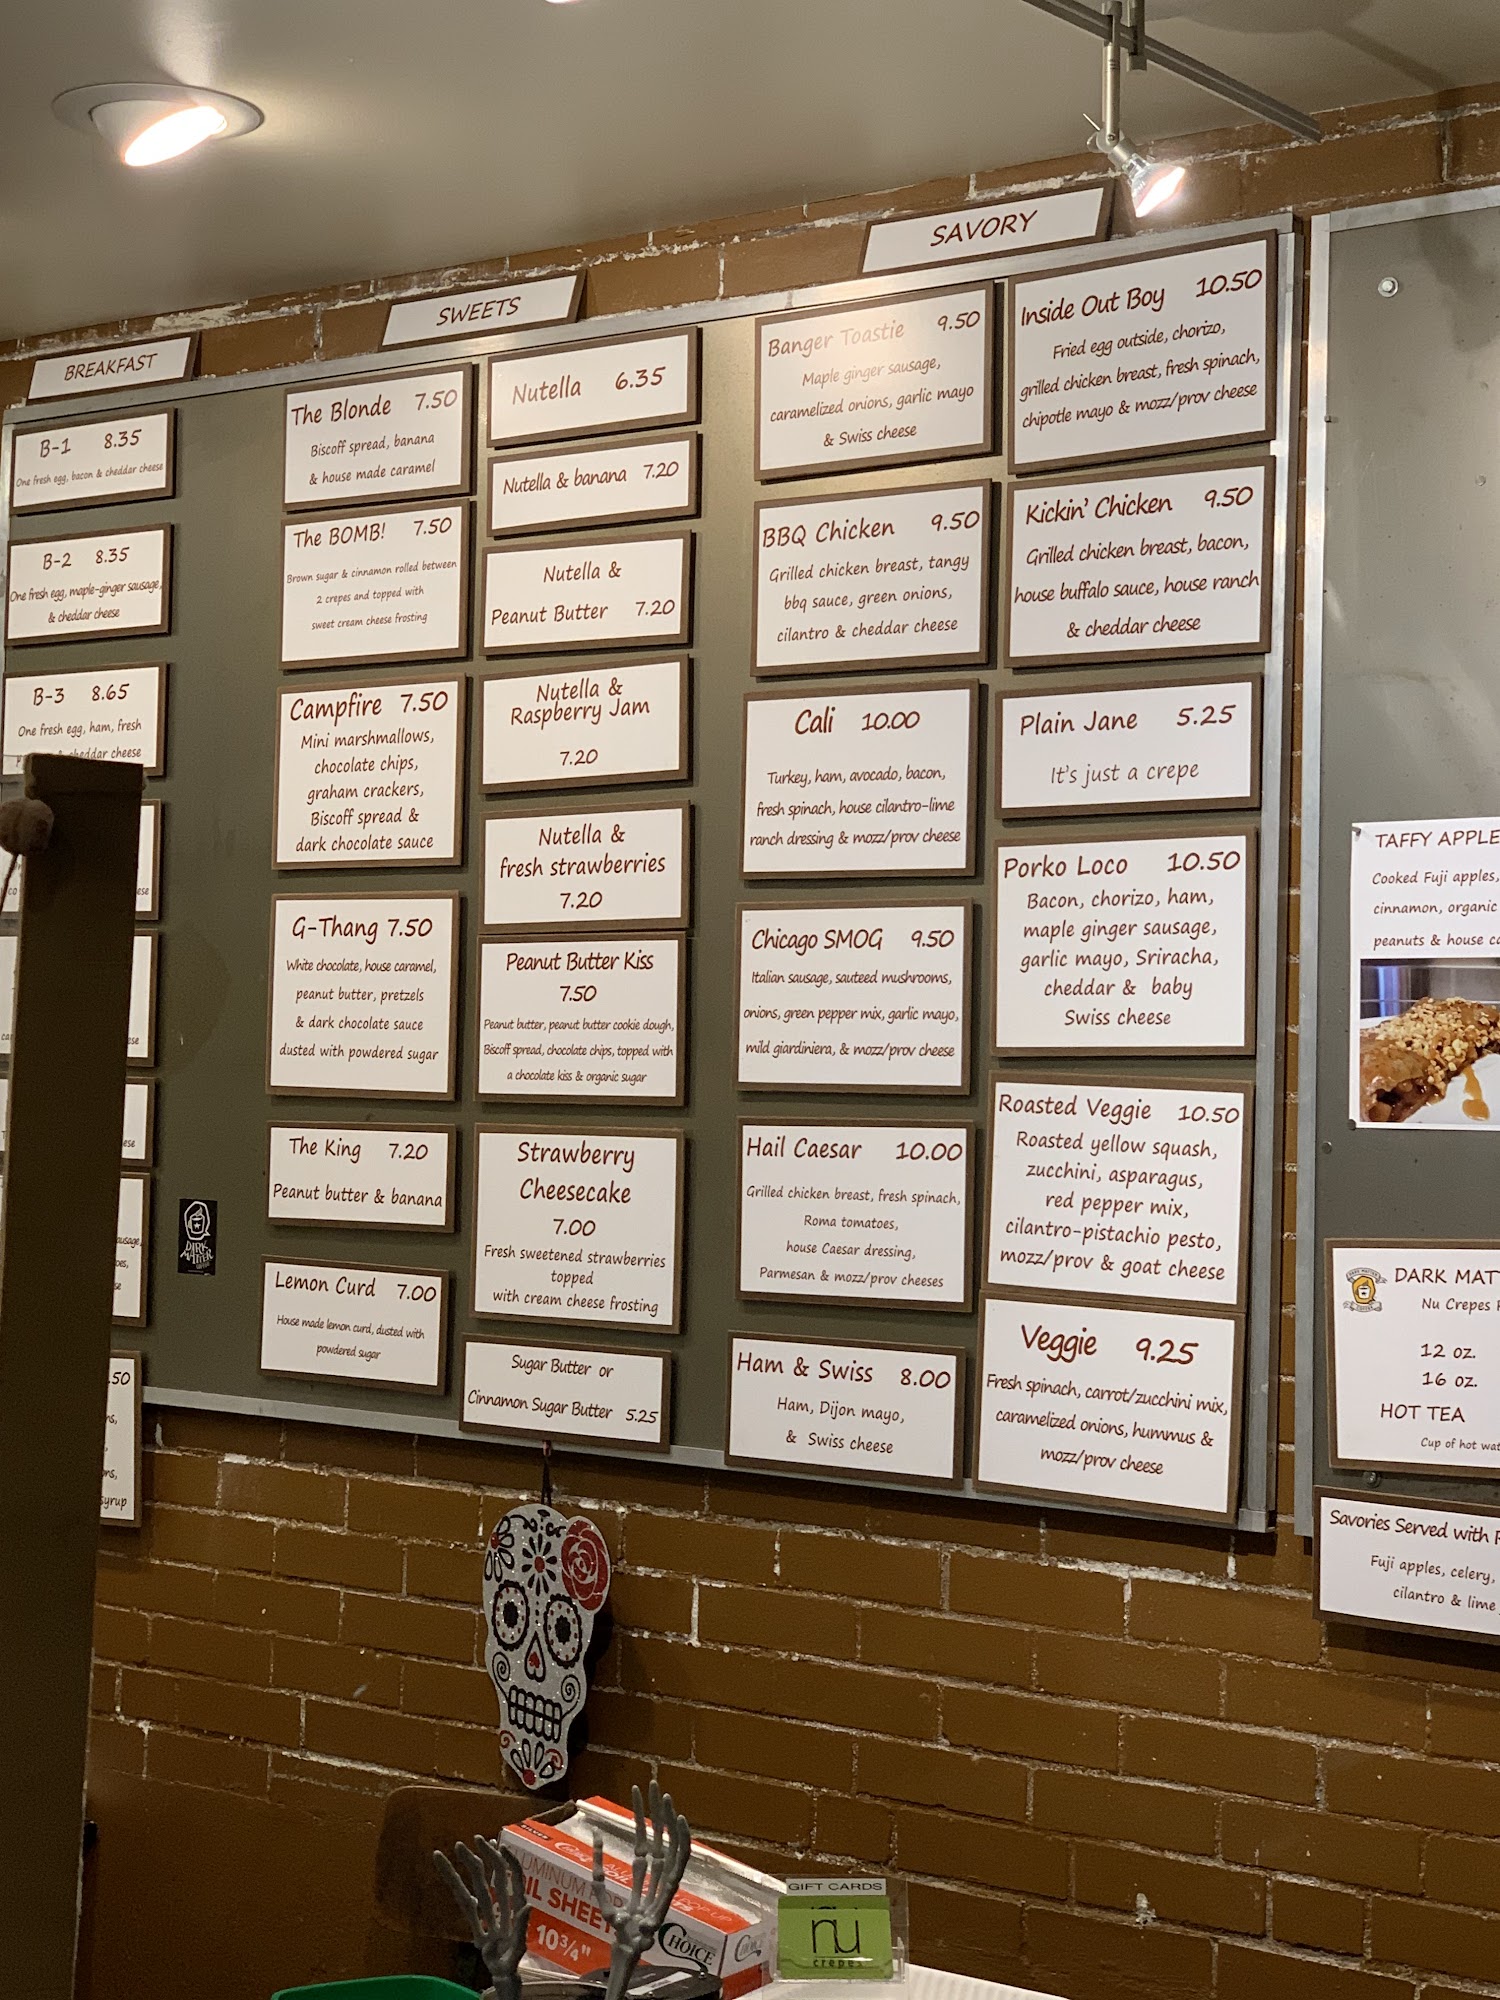 BREAKFAST
B-1 8.35
One fresh egg, bacon & cheddar cheese
B-2 8.35
One fresh egg, maple-ginger sausage,
& cheddar cheese
B-3 8.65
One fresh egg, ham, fresh
& cheddar cheese
.50
syrup
SWEETS
The Blonde 7.50
Biscoff spread, banana
& house made caramel
The BOMB! 7.50
Brown sugar & cinnamon rolled between
2 crepes and topped with
sweet cream cheese frosting
Campfire 7.50
Mini marshmallows,
chocolate chips,
graham crackers,
Biscoff spread &
dark chocolate sauce
G-Thang 7.50
White chocolate, house caramel,
peanut butter, pretzels
& dark chocolate sauce
dusted with powdered sugar
The King 7.20
Peanut butter & banana
Lemon Curd 7.00
House made lemon curd, dusted with
powdered sugar
Nutella 6.35
Nutella & banana 7.20
Nutella &
Peanut Butter 7.20
Nutella &
Raspberry Jam
7.20
Nutella &
fresh strawberries
7.20
Peanut Butter Kiss
7.50
Peanut butter, peanut butter cookie dough,
Biscoff spread, chocolate chips, topped with
a chocolate kiss & organic sugar
Strawberry
Cheesecake
7.00
Fresh sweetened strawberries
topped
with cream cheese frosting
Sugar Butter or
Cinnamon Sugar Butter 5.25
SAVORY
Banger Toastie 9.50
Maple ginger sausage,
caramelized onions, garlic mayo
& Swiss cheese
BBQ Chicken 9.50
Grilled chicken breast, tangy
bbq sauce, green onions,
cilantro & cheddar cheese
Cali 10.00
Turkey, ham, avocado, bacon,
fresh spinach, house cilantro-lime
ranch dressing & mozz/prov cheese
Chicago SMOG 9.50
Italian sausage, sauteed mushrooms,
onions, green pepper mix, garlic mayo,
mild giardiniera, & mozz/prov cheese
Hail Caesar 10.00
Grilled chicken breast, fresh spinach,
Roma tomatoes,
house Caesar dressing,
Parmesan & mozz/prov cheeses
Ham & Swiss 8.00
Ham, Dijon mayo,
& Swiss cheese
Inside Out Boy 10.50
Fried egg outside, chorizo,
grilled chicken breast, fresh spinach,
chipotle mayo & mozz/prov cheese
Kickin' Chicken 9.50
Grilled chicken breast, bacon,
house buffalo sauce, house ranch
& cheddar cheese
Plain Jane 5.25
It's just a crepe
Porko Loco 10.50
Bacon, chorizo, ham,
maple ginger sausage,
garlic mayo, Sriracha,
cheddar & baby
Swiss cheese
Roasted Veggie 10.50
Roasted yellow squash,
zucchini, asparagus,
red pepper mix,
cilantro-pistachio pesto,
mozz/prov & goat cheese
Veggie 9.25
Fresh spinach, carrot/zucchini mix,
caramelized onions, hummus &
mozz/prov cheese
TAFFY APPLE
Cooked Fuji apples,
cinnamon, organic
peanuts & house
DARK MAT
Nu Crepes
12 oz.
16 oz.
HOT TEA
Cup of hot
Savories Served with
Fuji apples, celery,
cilantro & lime
DARK
MATTER
FOIL SHEETS
10 3/4"
CHOICE
GIFT CARDS
nu
crepes